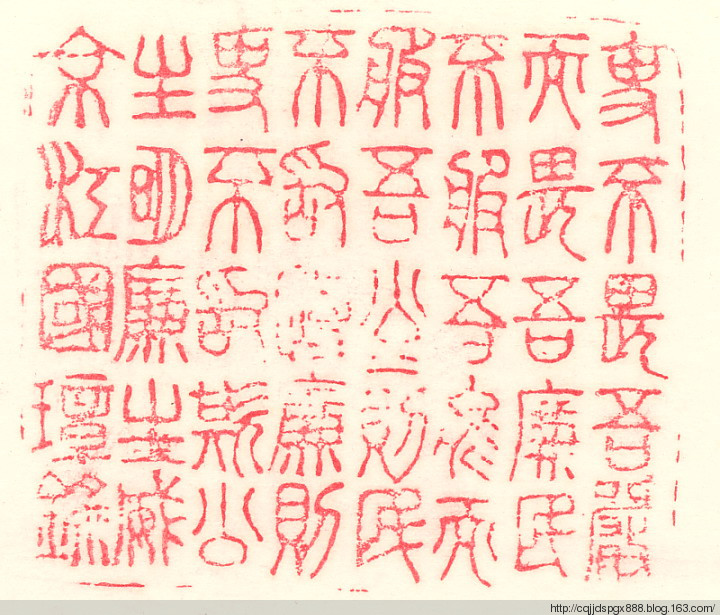 吏不畏吾嚴
而畏吾廉民
不服吾能而
服吾公〻則民
不敢慢廉則
吏不敢欺公
生明廉生威
余江國
http://cqjjdspgx888.blog.163.com/